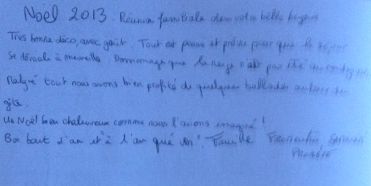 Noël 2013. Réunion familiale dans votre belle
Très bonne déco, avec goût. Tout est pensé et prévu pour que le séjour
se déroule à merveille. Dommage que la neige n'ait pas été au rendez-vous
Malgré tout nous avons bien profité de quelques ballades autour du
gîte.
Un Noël bien chaleureux comme nous l'avions imaginé!
Bon bout d'an et "à l'an qué ven". Famille